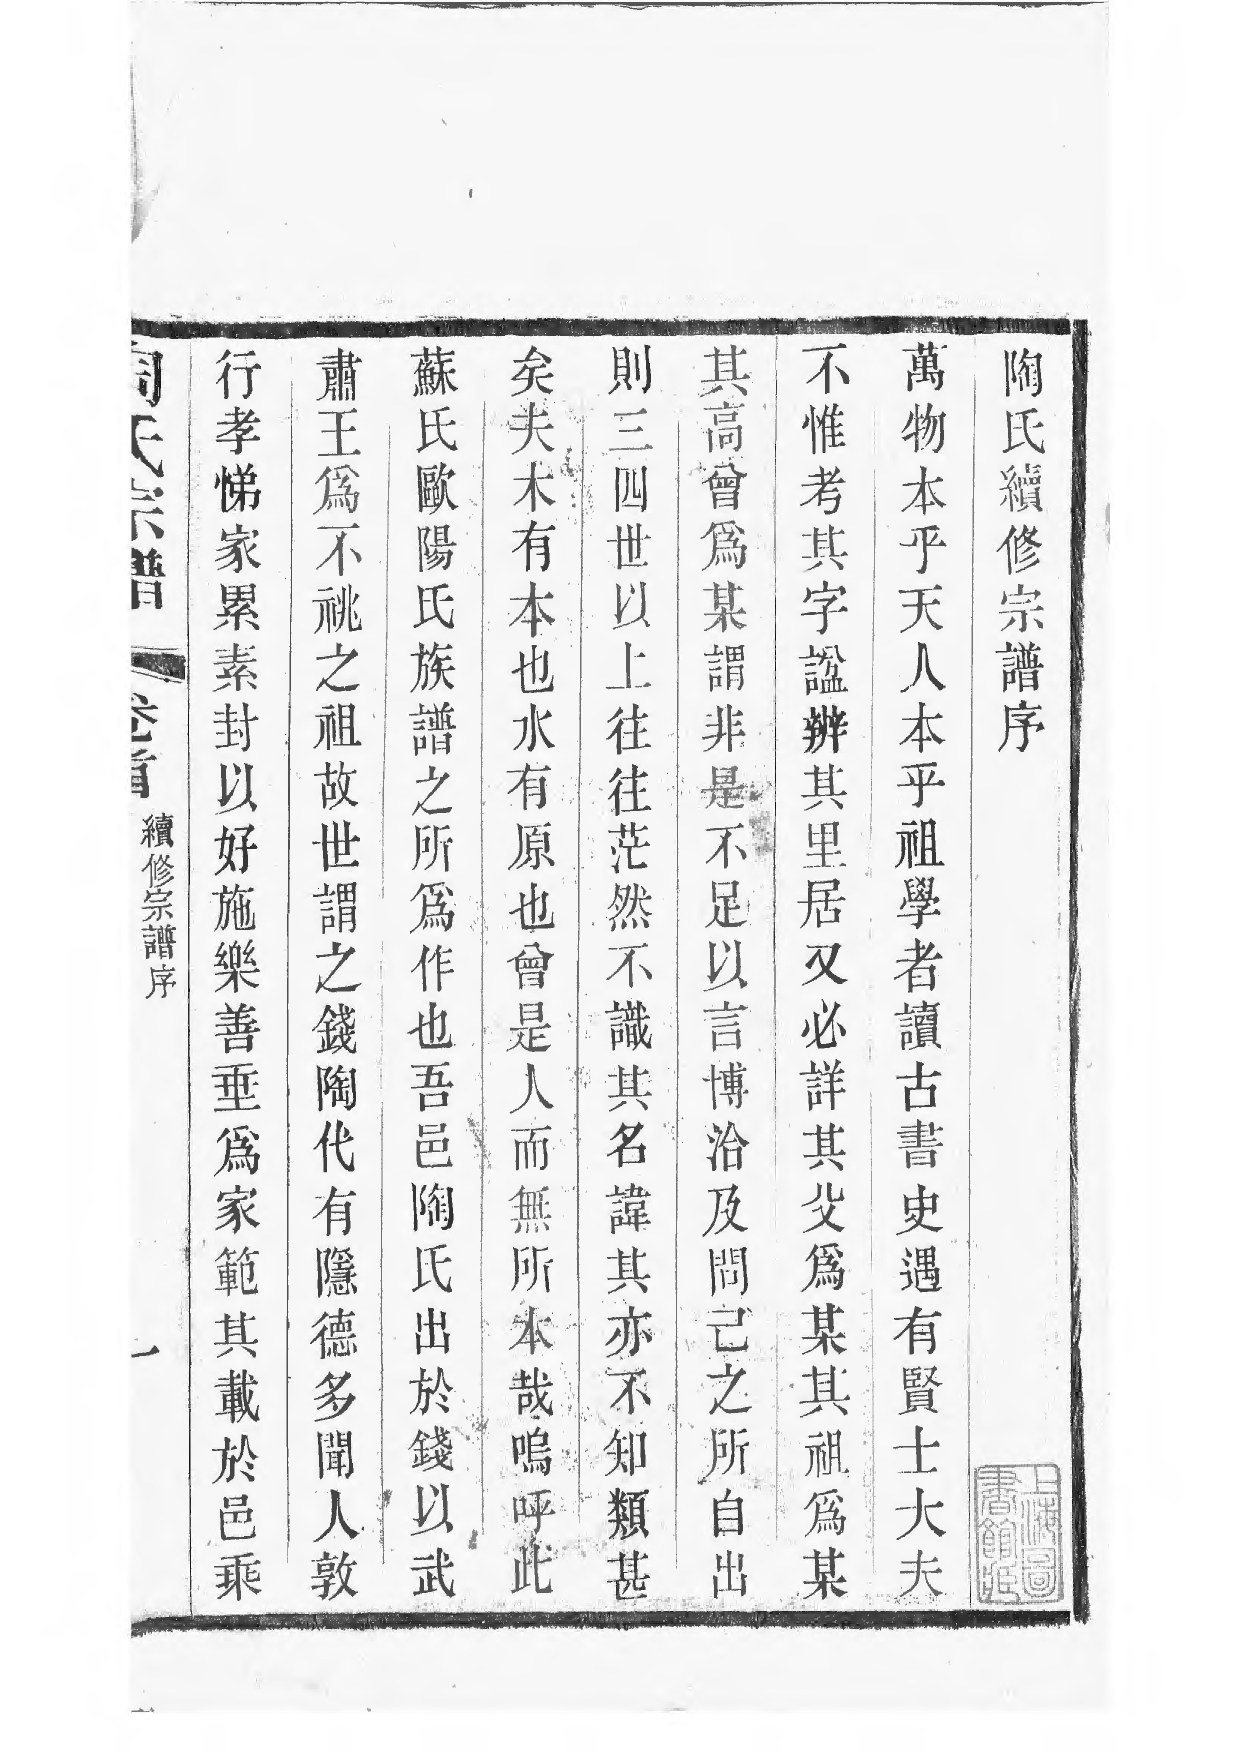 陶氏續修宗譜序
萬物本乎天人本乎祖學者讀古書史遇有賢士大夫
不惟考其字諡辨其里居又必詳其父爲某其祖爲某
其高曾爲某謂非是不足以言博洽及問己之所自出
則三四世以上往往茫然不識其名諱其亦不知類甚
矣夫木有本也水有原也曾是人而無所本哉嗚呼此
蘇氏歐陽氏族譜之所爲作也吾邑陶氏出於錢以武
肅王爲不祧之祖故世謂之錢陶代有隱德多聞人敦
行孝悌家累素封以好施樂善垂爲家範其載於邑乘
陶氏宗譜 卷首 續修宗譜序 一
上海圖
書館藏